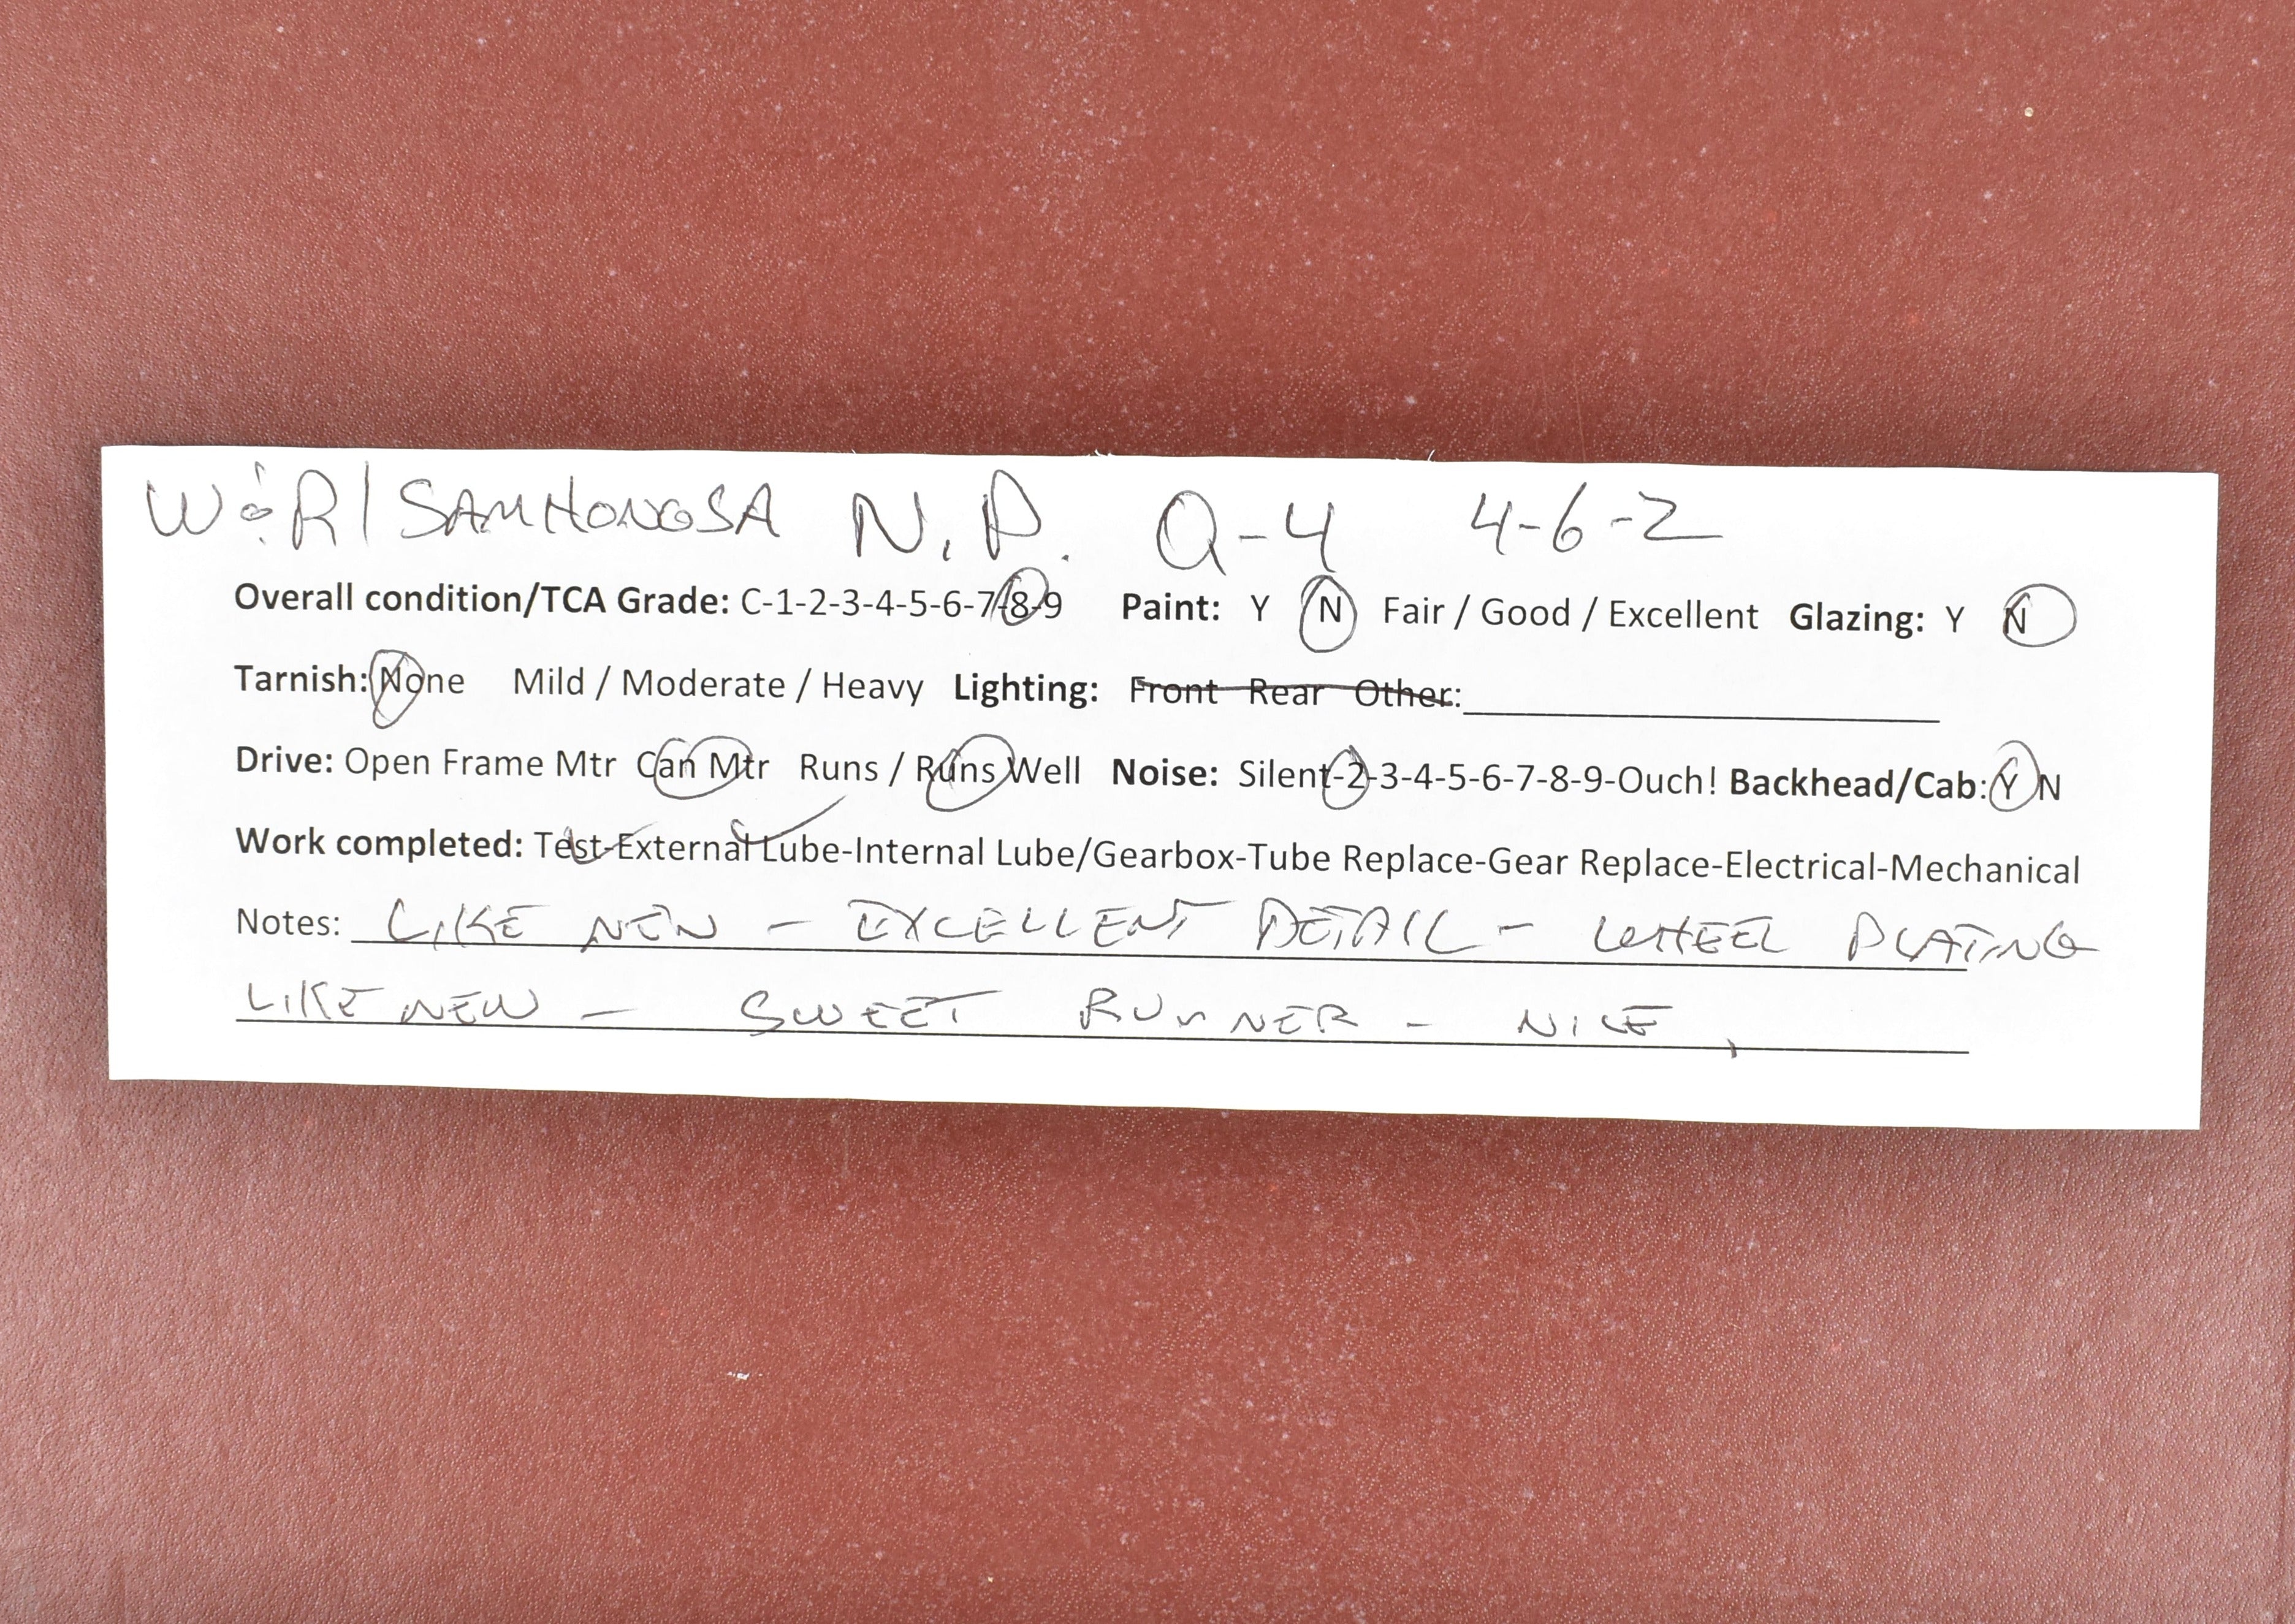 W&R/SAMHONGSA N.P. Q-4 4-6-2
Overall condition/TCA Grade: C-1-2-3-4-5-6-7-8-9 Paint: Y N Fair / Good / Excellent Glazing: Y N
Tarnish: None Mild / Moderate / Heavy Lighting: Front Rear Other:
Drive: Open Frame Mtr Can Mtr Runs / Runs Well Noise: Silent-2-3-4-5-6-7-8-9-Ouch! Backhead/Cab: Y N
Work completed: Test-External Lube-Internal Lube/Gearbox-Tube Replace-Gear Replace-Electrical-Mechanical
Notes: LIKE NEW - EXCELLENT DETAIL - WHEEL PLATING
LIKE NEW - SWEET RUNNER - NICE,